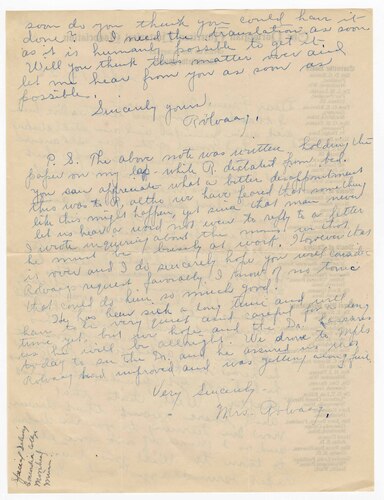 soon do you think you could have it
done? I need the translation as soon
as it is humanly possible to get it.
Will you think this matter over and
let me hear from you as soon as
possible.
Sincerely yours,
Rölvaag.
P.S. The above note was written, holding the
paper on my lap while R. dictated from bed.
You can appreciate what a bitter disappointment
this was to R. altho we have feared that something
like this might happen, yet since that man never
let us hear a word not even to reply to a letter
I wrote inquiring about the mns, we thot
he must be busily at work. However that
is over and I do sincerely hope you will consider
Rölvaag's request favorably. I know of no tonic
that could do him so much good!
He has been sick a long time and will
have to be very quiet and careful for a long
time yet, but our hope and the Dr. assures
us he will be allright. We drove to Mpls
today to see the Dr. and he assured us that
Rölvaag had improved and was getting along fine.
Very Sincerely
Mrs. Rölvaag.
Concordia College
Moorhead
Minn.